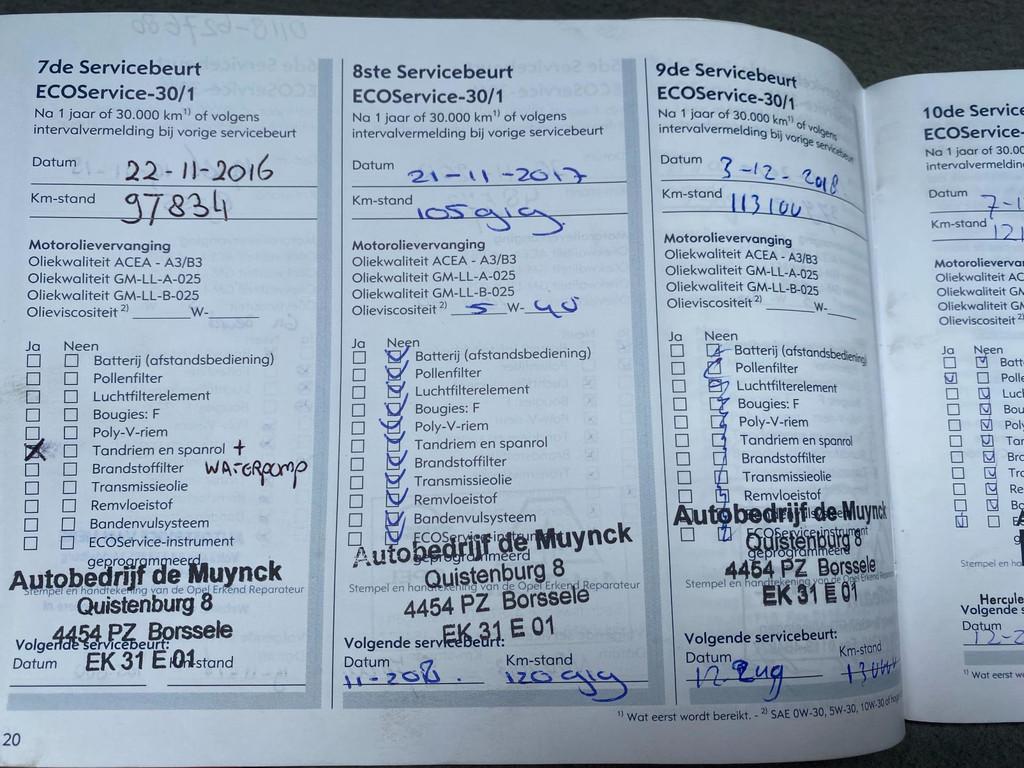 7de Servicebeurt
ECOService-30/1
Na 1 jaar of 30.000 km¹⁾ of volgens
intervalvermelding bij vorige servicebeurt
Datum 22-11-2016
Km-stand 97834
Motorolievervanging
Oliekwaliteit ACEA - A3/B3
Oliekwaliteit GM-LL-A-025
Oliekwaliteit GM-LL-B-025
Olieviscositeit ²⁾ ______W-______
Ja Neen
Batterij (afstandsbediening)
Pollenfilter
Luchtfilterelement
Bougies: F
Poly-V-riem
Tandriem en spanrol +
Brandstoffilter WATERPOMP
Transmissieolie
Remvloeistof
Bandenvulsysteem
ECOService-instrument
geprogrammeerd
Autobedrijf de Muynck
Stempel en handtekening van de Opel Erkend Reparateur
Quistenburg 8
4454 PZ Borssele
Volgende servicebeurt:
EK 31 E 01
Datum Km-stand
20
8ste Servicebeurt
ECOService-30/1
Na 1 jaar of 30.000 km¹⁾ of volgens
intervalvermelding bij vorige servicebeurt
Datum 21-11-2017
Km-stand 105919
Motorolievervanging
Oliekwaliteit ACEA - A3/B3
Oliekwaliteit GM-LL-A-025
Oliekwaliteit GM-LL-B-025
Olieviscositeit ²⁾ 5 W- 40
Ja Neen
Batterij (afstandsbediening)
Pollenfilter
Luchtfilterelement
Bougies: F
Poly-V-riem
Tandriem en spanrol
Brandstoffilter
Transmissieolie
Remvloeistof
Bandenvulsysteem
ECOService-instrument
geprogrammeerd
Autobedrijf de Muynck
Quistenburg 8
Stempel en handtekening van de Opel Erkend Reparateur
4454 PZ Borssele
EK 31 E 01
Volgende servicebeurt:
Datum Km-stand
11-2018. 120919
9de Servicebeurt
ECOService-30/1
Na 1 jaar of 30.000 km¹⁾ of volgens
intervalvermelding bij vorige servicebeurt
Datum 3-12-2018
Km-stand 113100
Motorolievervanging
Oliekwaliteit ACEA - A3/B3
Oliekwaliteit GM-LL-A-025
Oliekwaliteit GM-LL-B-025
Olieviscositeit ²⁾ ______W-______
Ja Neen
Batterij (afstandsbediening)
Pollenfilter
Luchtfilterelement
Bougies: F
Poly-V-riem
Tandriem en spanrol
Brandstoffilter
Transmissieolie
Remvloeistof
ECOService-instrument
geprogrammeerd
Autobedrijf de Muynck
Quistenburg 8
4454 PZ Borssele
Stempel en handtekening van de Opel Erkend Reparateur
EK 31 E 01
Volgende servicebeurt:
Datum Km-stand
¹⁾ Wat eerst wordt bereikt. - ²⁾ SAE 0W-30, 5W-30, 10W-30 of
10de Service
ECOService-
Na 1 jaar of 30.0
intervalvermeldin
Datum 7-1
Km-stand 121
Motorolievervan
Oliekwaliteit AC
Oliekwaliteit GM
Oliekwaliteit GM
Olieviscositeit ²⁾
Ja Neen
Batt
Polle
Luch
Bou
Poly
Tan
Bra
Tra
Re
Ba
Stempel en ha
Hercule
Volgende s
Datum
¹⁾ Wat eerst w